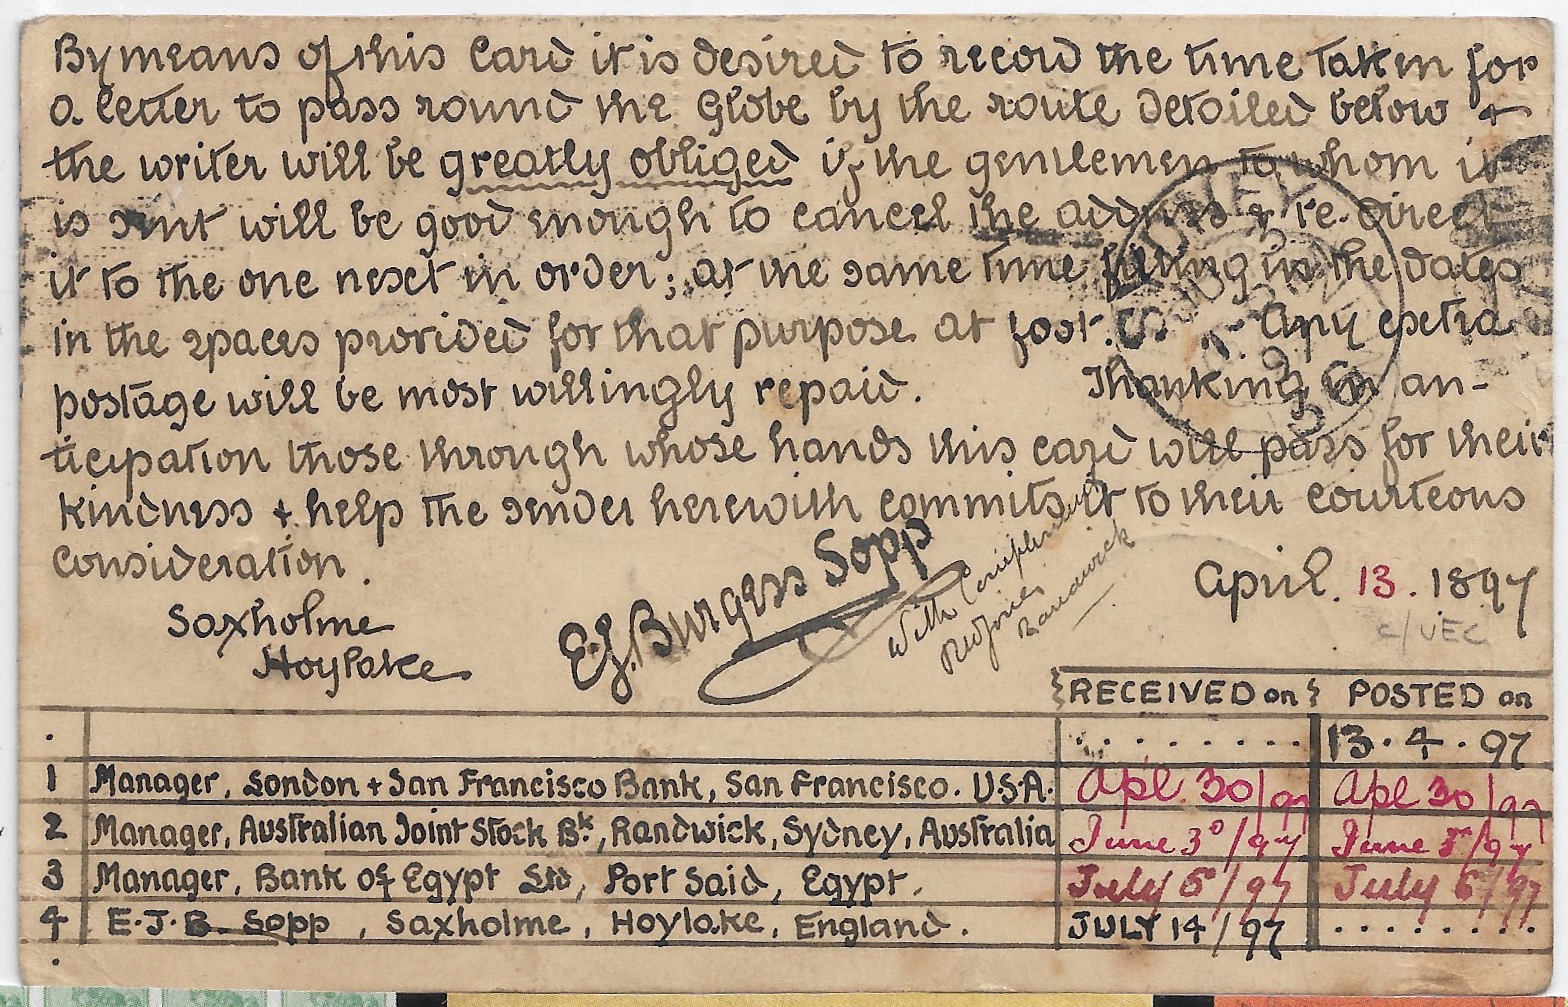 By means of this Card it is desired to record the time taken for
a letter to pass round the Globe by the route detailed below +
the writer will be greatly obliged if the gentlemen to whom it
is sent will be good enough to cancel the address + re-direct
it to the one next in order; at the same time filling in the dates
in the spaces provided for that purpose at foot. Any extra
postage will be most willingly repaid. Thanking in an-
ticipation those through whose hands this card will pass for their
kindness + help the sender herewith commits it to their courteous
consideration.
April. 13. 1897
C/VEC
Saxholme
Hoylake
E.J. Burgess Sopp
With Compliments
Randwick
SYDNEY
RECEIVED on POSTED on
. . . . . . . . . 13 · 4 · 97
1 Manager, London + San Francisco Bank, San Francisco. U.S.A. Apl. 30/97 Apl 30/97
2 Manager, Australian Joint Stock Bk, Randwick, Sydney, Australia June 3°/97 June /97
3 Manager, Bank of Egypt Ltd, Port Said, Egypt. July 6/97 July 6/97
4 E.J.B. Sopp, Saxholme, Hoylake, England. JULY 14/97 . . . . . . . .